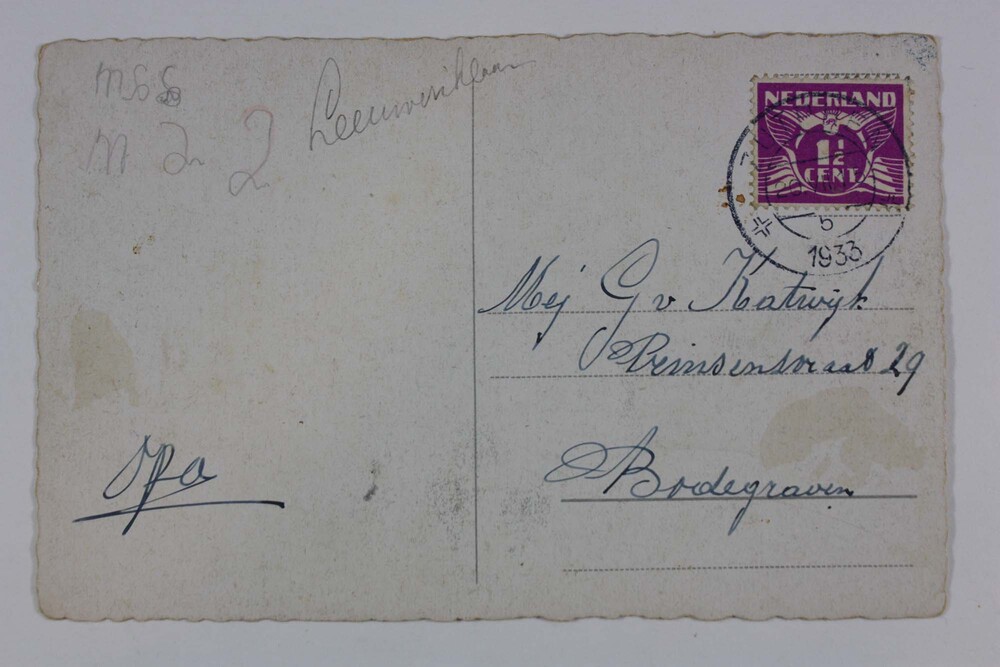 Leeuweriklaan
NEDERLAND
1½
CENT.
1933
Mej G v Katwijk
Prinsenstraat 29
Bodegraven
Opa